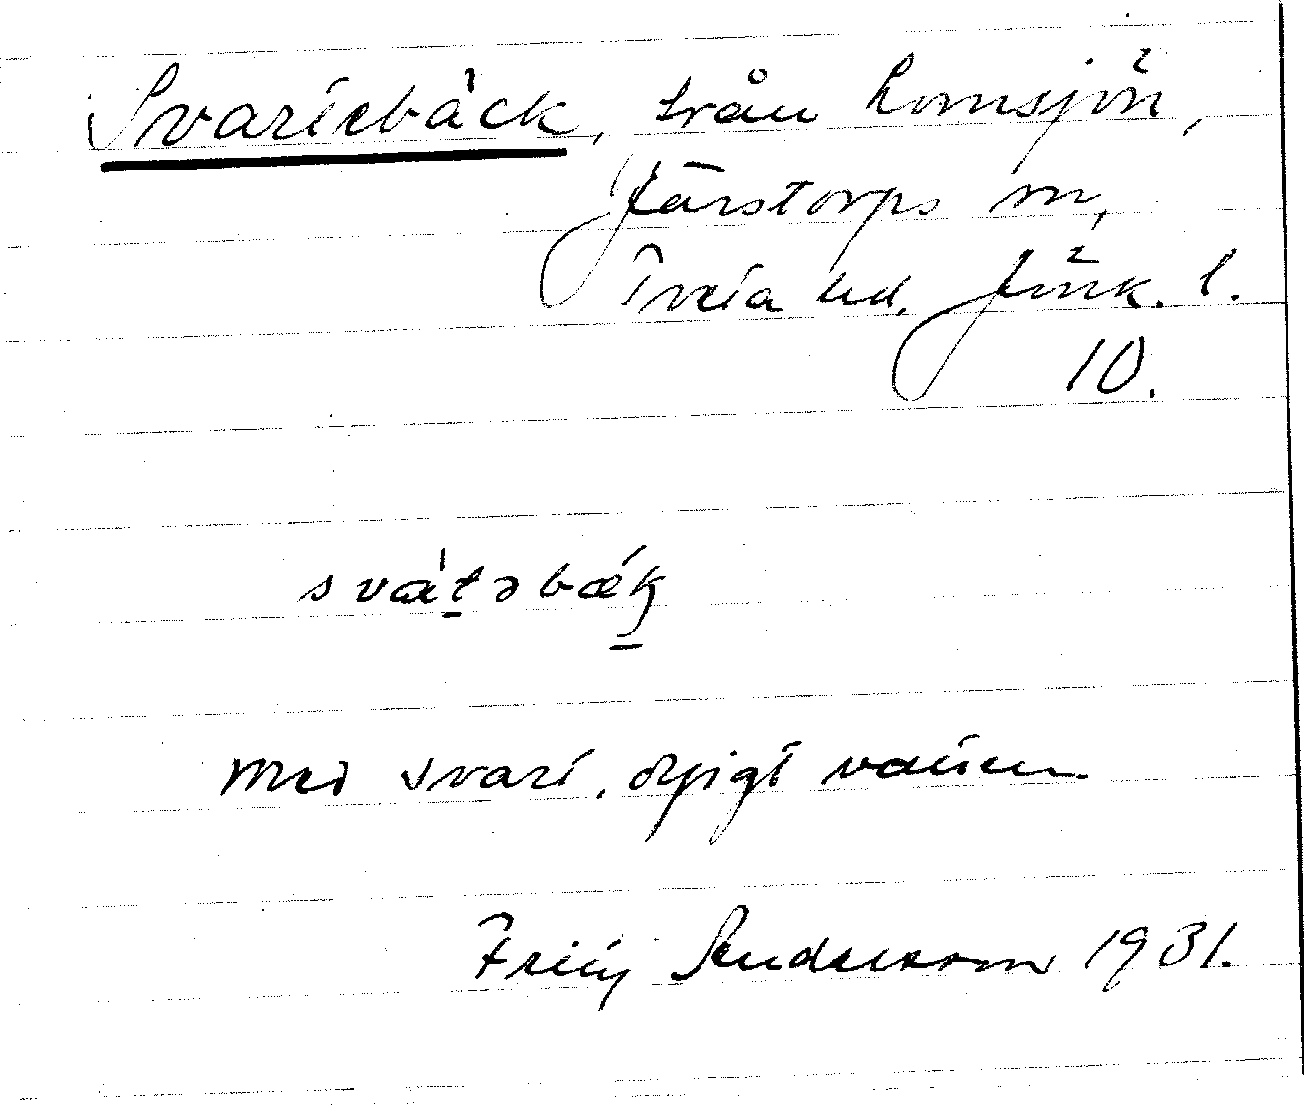 Svartebäck, från Lomsjön,
Järstorps sn,
Tveta hd. Jönk. l.
10.
svat̠əbæk̠
Med svart, dyigt vatten
Fritiof Andersson 1931.